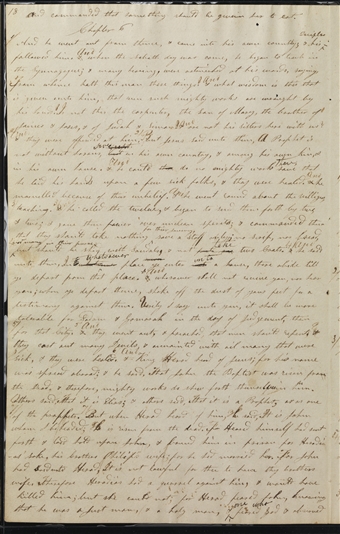 13 and commanded that something should be given her to eat.
Chapter 6
And he went out from thence, & came into his own country; & his disciples
followed him & when the sabbath day was come, he began to teach in
the synagogue; & many hearing, were astonished at his words, saying
from whence hath this man these things? & what wisdom is this that
is given unto him, that even such mighty works are wrought by
his hands; is not this the carpenter, the son of Mary, the brother of
James & Joses, & of Juda & Simon? & are not his sisters here with us?
& they were offended at him, but Jesus said unto them, A Prophet is
not without honor, in his own country, & among his own kin &
in his own house; & he could do no mighty works there
he laid his hands upon a few sick folks, & they were healed &
marvelled because of their unbelief. & he went round about the villages
teaching. & he called the twelve, & began to send them forth by two
& two; & gave them power over unclean spirits; & commanded them
that they should take nothing for their journey save a staff only; no scrip, nor bread,
nor money in their purse
but should be shod with sandals, & not take two coats; & he said
unto them, in whatsoever place ye enter into an house, there abide till
ye depart from that place; & whosoever shall not receive you, nor hear
you; when ye depart thence, shake off the dust of your feet for a
testimony against them. Verily I say unto you, it shall be more
tolerable for Sodom & Gomorrah in the day of judgment, than
for that city. & they went out, & preached that men should repent; &
they cast out many Devils, & anointed with oil many that were
sick, & they were healed. & King Herod heard of him; for his name
was spread abroad; & he said, That John the Baptist was risen from
the dead, & therefore, mighty works do shew forth themselves in him.
Others said, That it is Elias; & others said, That it is a Prophet, or as one
of the prophets. But when Herod heard of him, he said, It is John
whom I beheaded; he is risen from the dead. For Herod himself had sent
forth & laid hold upon John, & bound him in prison for Herodias
sake, his brother Philip's wife; for he had married her. For John
had said unto Herod, It is not lawful for thee to have thy brothers
wife. Therefore Herodias had a quarrel against him, & would have
killed him; but she could not; for Herod feared John, knowing
that he was a just man, & a holy man, & one who feared God & observed